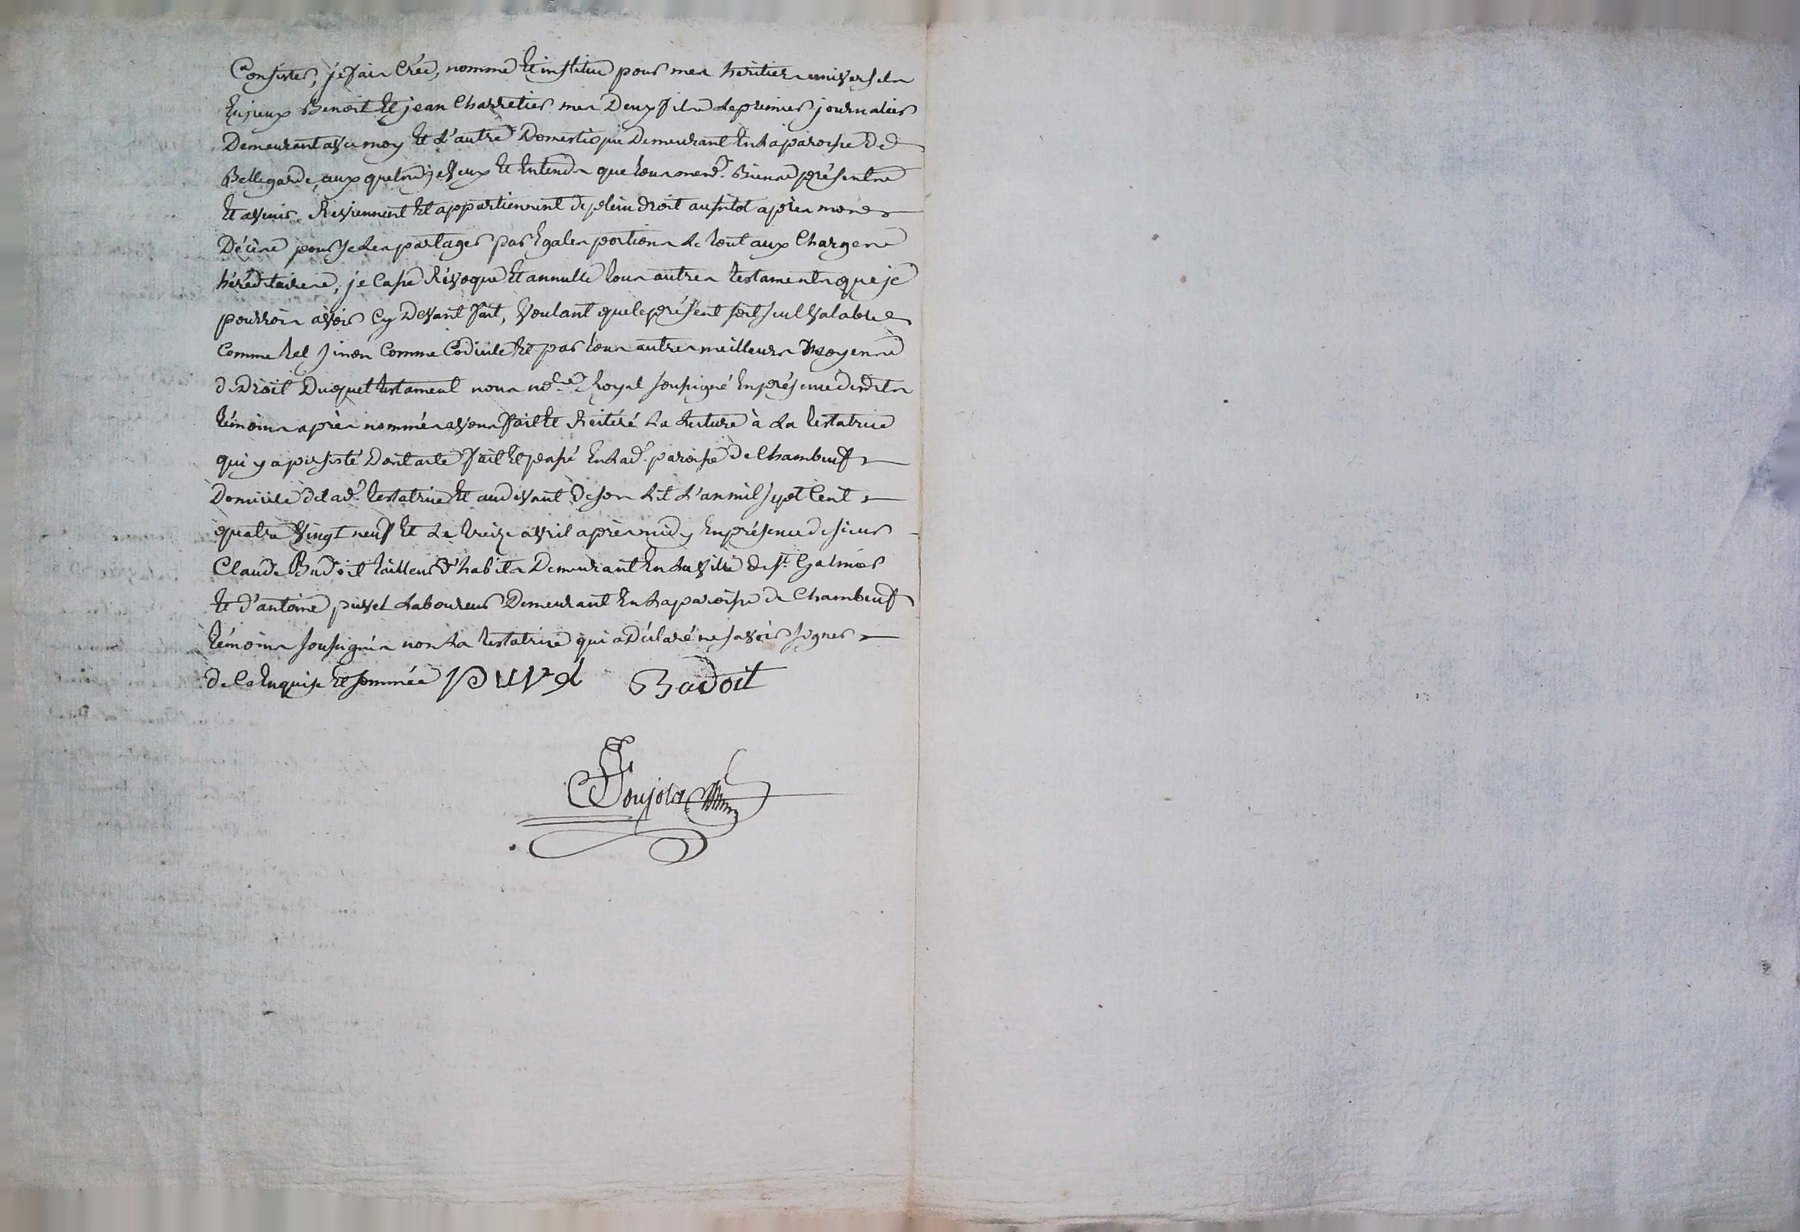 Consister, je fais Crée, nomme et institue pour mes héritiers universels
Enjeux Benoit et jean Charretier mes Deux fils le premier journalier
Demeurant avec moy et l'autre Domestique Demeurant En la paroisse de
Bellegarde, auxquels je veux et Entends que tous mesd. Biens présents
et avenir Reviennent et appartiennent de plein droit ausitot après mon
Décès pour se les partager par Egales portions le tout aux Charges
héréditaires, je Casse Révoque et annulle tous autres testaments que je
pourrois avoir Cy Devant fait, Voulant que le présent soit seul Valable
Comme tel sinon Comme Codicile et par tous autres meilleurs moyens
de Droit Duquel testament nous no.re Royal soussigné En présence desdits
témoins après nommés avons fait et Réitéré la lecture à la testatrice
qui y a persisté Dont acte fait et passé En lad. paroisse de Chambeuf
Domicile de lad. testatrice et au devant de son lit l'an mil sept Cent
quatre Vingt neuf et le treize avril après midy En présence de sieur
Claude Badoit tailleur d'habits Demeurant En la ville de St. Galmier
et d'antoine puvel Laboureur Demeurant En la paroisse de Chambeuf
témoins soussignés non la testatrice qui a Déclaré ne savoir signer
de Ce Enquise et sommée puvel Badoit
Poujola